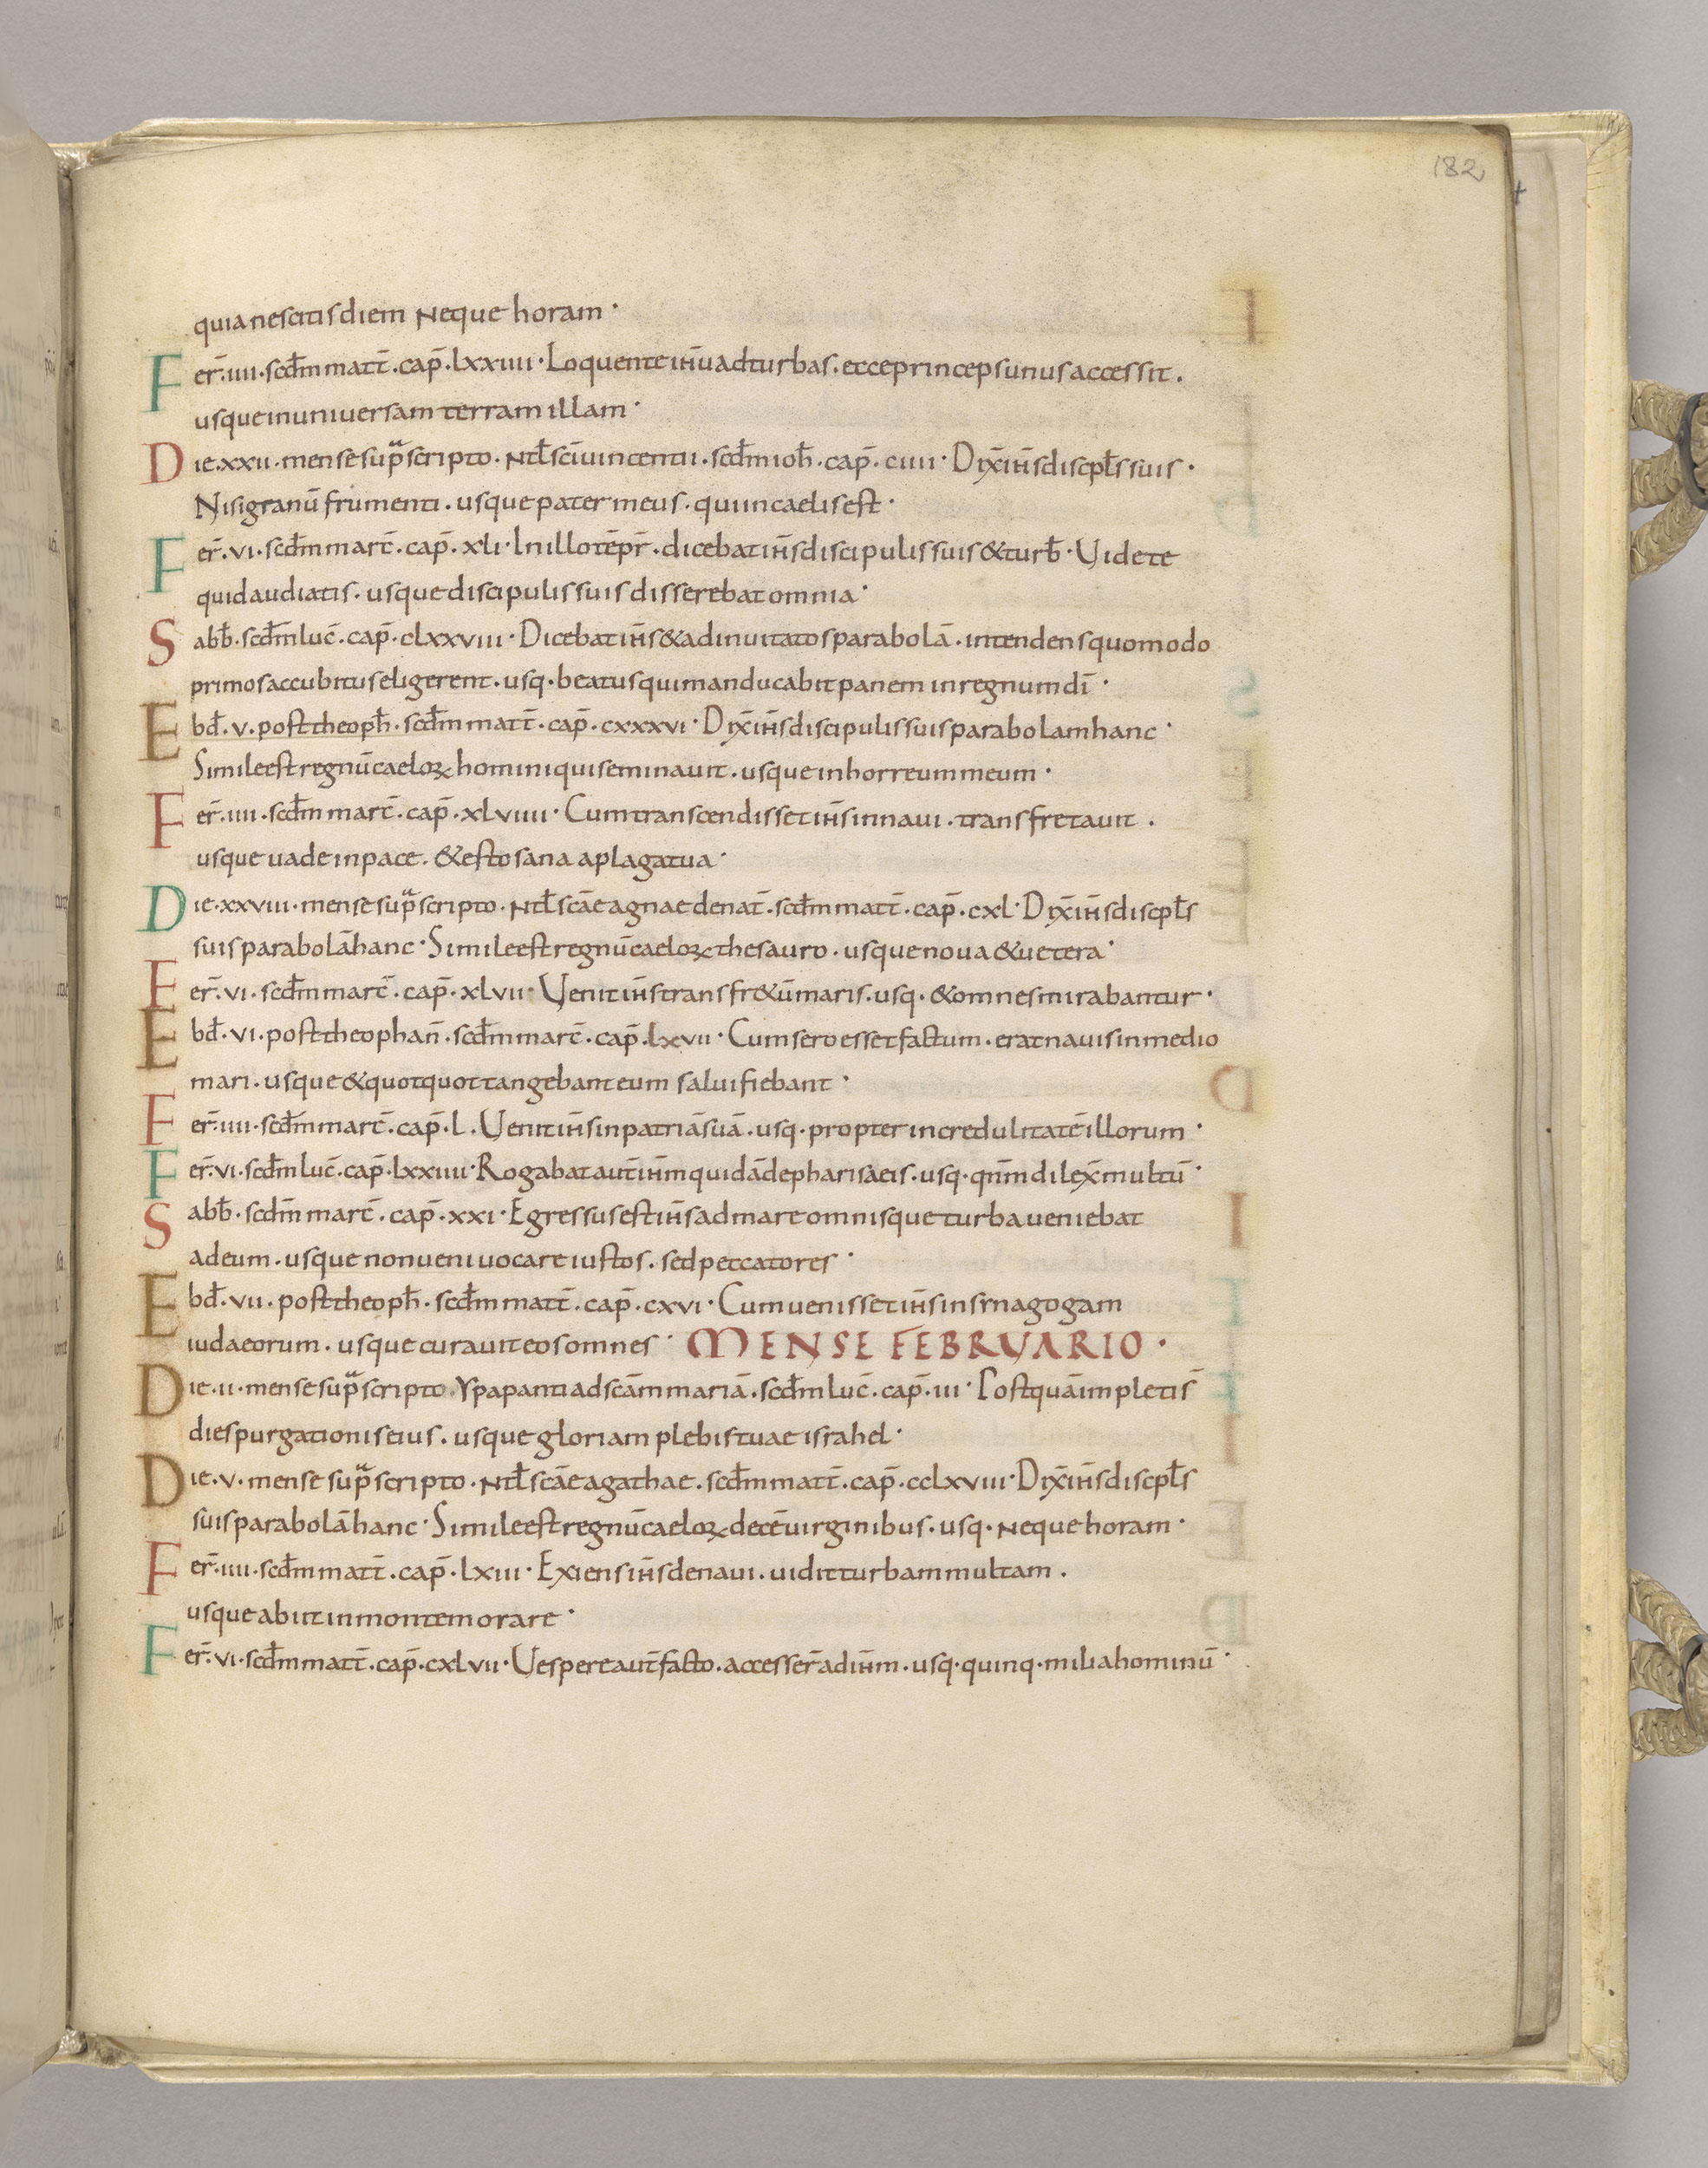 182
quia nescitis diem neque horam·
Fer̄·iiii·scdm̄ matt̄·cap̄·lxxiiii·Loquente ih̄u ad turbas·ecce princeps unus accessit·
usque in universam terram illam·
Die·xxii·mense sup̄ascripto·Ntł sc̄i vincentii·scdm̄ ioh̄·cap̄·ciiii·Dix̄ ih̄s discipłs suis·
Nisi granū frumenti·usque pater meus·qui in caelis est·
Fer̄·vi·scdm̄ marc̄·cap̄·xli·In illo tēpr̄·dicebat ih̄s discipulis suis & turb̄·Videte
quid audiatis·usque discipulis suis disserebat omnia·
Sabb̄·scdm̄ luc̄·cap̄·clxxviii·Dicebat ih̄s & ad invitatos parabolā·intendens quomodo
primos accubitus eligerent·usq·beatus qui manducabit panem in regnum dī·
Ebd̄·v·post theoph̄·scdm̄ matt̄·cap̄·cxxxvi·Dix̄ ih̄s discipulis suis parabolam hanc·
Simile est regnū caeloꝝ homini qui seminavit·usque in horreum meum·
Fer̄·iiii·scdm̄ marc̄·cap̄·xlviiii·Cum transcendisset ih̄s in navi·transfretavit·
usque vade in pace·& esto sana a plaga tua·
Die·xxviii·mense sup̄ascripto·Ntł sc̄ae agnae de nat̄·scdm̄ matt̄·cap̄·cxl·Dix̄ ih̄s discipłs
suis parabolā hanc·Simile est regnū caeloꝝ thesauro·usque nova & vetera·
Fer̄·vi·scdm̄ marc̄·cap̄·xlvii·Venit ih̄s trans fr&ū maris·usq·& omnes mirabantur·
Ebd̄·vi·post theophan̄·scdm̄ marc̄·cap̄·lxvii·Cum sero esset factum·erat navis in medio
mari·usque & quotquot tangebant eum salvi fiebant·
Fer̄·iiii·scdm̄ marc̄·cap̄·l·Venit ih̄s in patriā suā·usq·propter incredulitatē illorum·
Fer̄·vi·scdm̄ luc̄·cap̄·lxxiiii·Rogabat aut̄ ih̄m quidā de pharisaeis·usq·qnm̄ dilex̄ multū·
Sabb̄·scdm̄ marc̄·cap̄·xxi·Egressus est ih̄s ad mare omnisque turba veniebat
ad eum·usque non veni vocare iustos·sed peccatores·
Ebd̄·vii·post theoph̄·scdm̄ matt̄·cap̄·cxvi·Cum venisset ih̄s in synagogam
iudaeorum·usque curavit eos omnes· MENSE FEBRVARIO·
Die·ii·mense sup̄ascripto·Ypapanti ad scām mariā·scdm̄ luc̄·cap̄·iii·Postquā impleti s̄
dies purgationis eius·usque gloriam plebis tuae israhel·
Die·v·mense sup̄ascripto·Ntł sc̄ae agathae·scdm̄ matt̄·cap̄·cclxviii·Dix̄ ih̄s discipłs
suis parabolā hanc·Simile est regnū caeloꝝ decē virginibus·usq·neque horam·
Fer̄·iiii·scdm̄ matt̄·cap̄·lxiii·Exiens ih̄s de navi·vidit turbam multam·
usque abiit in montem orare·
Fer̄·vi·scdm̄ matt̄·cap̄·cxlvii·Vespere aut̄ facto·accesser̄ ad ih̄m·usq·quinq·milia hominū·